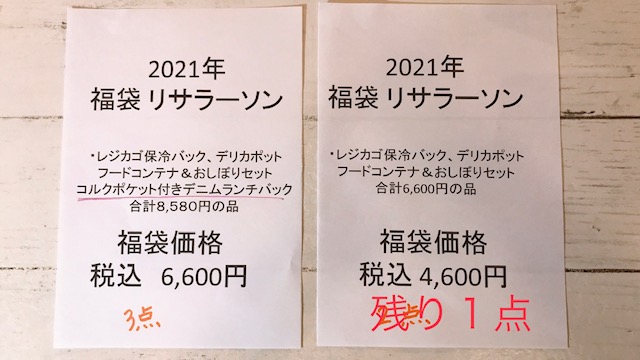 2021年
福袋 リサラーソン
・レジカゴ保冷バック、デリカポット
フードコンテナ＆おしぼりセット
コルクポケット付きデニムランチバック
合計8,580円の品
福袋価格
税込 6,600円
3点
2021年
福袋 リサラーソン
・レジカゴ保冷バック、デリカポット
フードコンテナ＆おしぼりセット
合計6,600円の品
福袋価格
税込 4,600円
残り１点